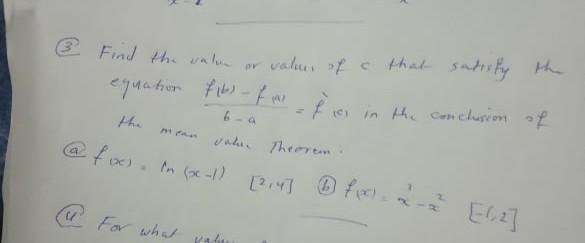 ③ Find the value or values of c that satisfy the
equation f(b) - f(a) / b - a = f'(c) in the conclusion of
the mean value Theorem.
ⓐ f(x) = ln (x-1) [2,4] ⓑ f(x) = x³ - x² [-1,2]
④ For what